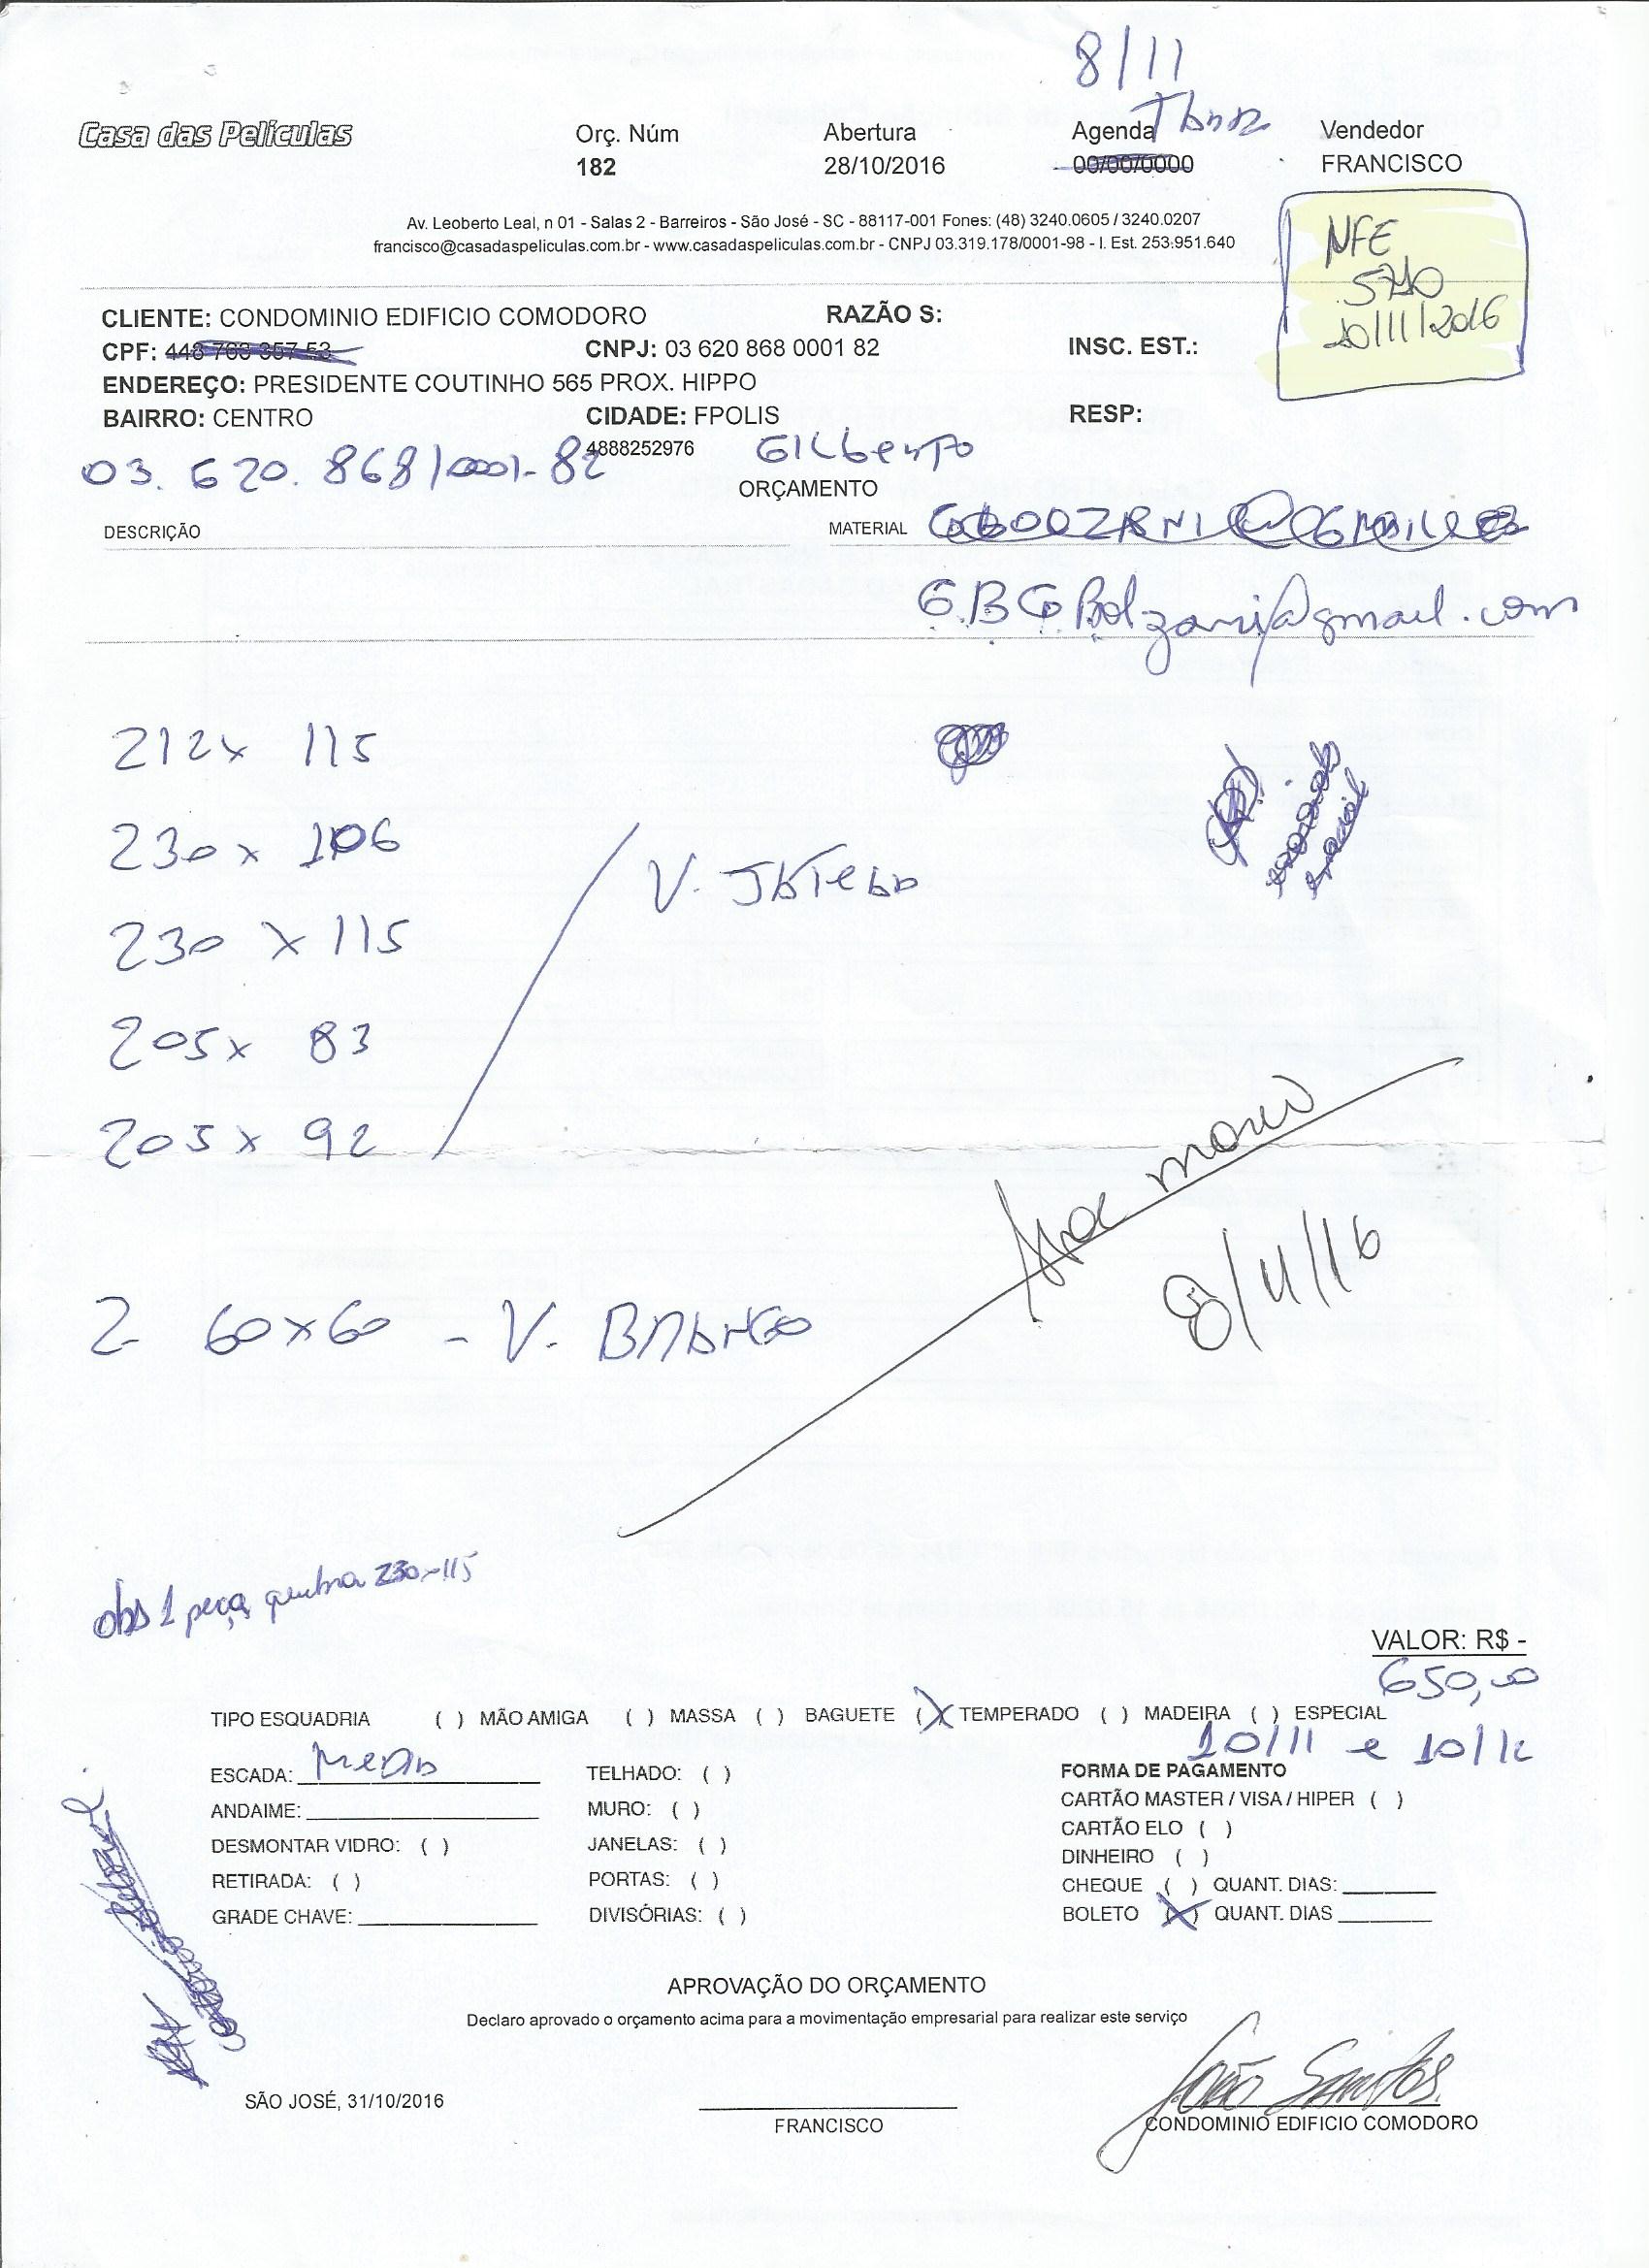 8/11
Casa das Películas
Orç. Núm Abertura Agenda Vendedor
182 28/10/2016 00/00/0000 FRANCISCO
Av. Leoberto Leal, n 01 - Salas 2 - Barreiros - São José - SC - 88117-001 Fones: (48) 3240.0605 / 3240.0207
francisco@casadaspeliculas.com.br - www.casadaspeliculas.com.br - CNPJ 03.319.178/0001-98 - I. Est. 253.951.640
NFE
10/11/2016
CLIENTE: CONDOMINIO EDIFICIO COMODORO RAZÃO S:
CPF: 448 763 357 53 CNPJ: 03 620 868 0001 82 INSC. EST.:
ENDEREÇO: PRESIDENTE COUTINHO 565 PROX. HIPPO
BAIRRO: CENTRO CIDADE: FPOLIS RESP:
4888252976 Gilberto
03.620.868/0001-82
ORÇAMENTO
DESCRIÇÃO MATERIAL
GBGBolzani@gmail.com
212x 115
230 x 106
V. Jateado
230 x 115
205x 83
205x 92
8/11/16
2 60x60 - V. Branco
obs 1 peça quebra 230-115
VALOR: R$ -
650,00
TIPO ESQUADRIA ( ) MÃO AMIGA ( ) MASSA ( ) BAGUETE (X) TEMPERADO ( ) MADEIRA ( ) ESPECIAL
10/11 e 10/12
ESCADA: Media TELHADO: ( ) FORMA DE PAGAMENTO
ANDAIME: MURO: ( ) CARTÃO MASTER / VISA / HIPER ( )
DESMONTAR VIDRO: ( ) JANELAS: ( ) CARTÃO ELO ( )
RETIRADA: ( ) PORTAS: ( ) DINHEIRO ( )
GRADE CHAVE: DIVISÓRIAS: ( ) CHEQUE ( ) QUANT. DIAS:
BOLETO (X) QUANT. DIAS
APROVAÇÃO DO ORÇAMENTO
Declaro aprovado o orçamento acima para a movimentação empresarial para realizar este serviço
João Santos.
SÃO JOSÉ, 31/10/2016
FRANCISCO CONDOMINIO EDIFICIO COMODORO